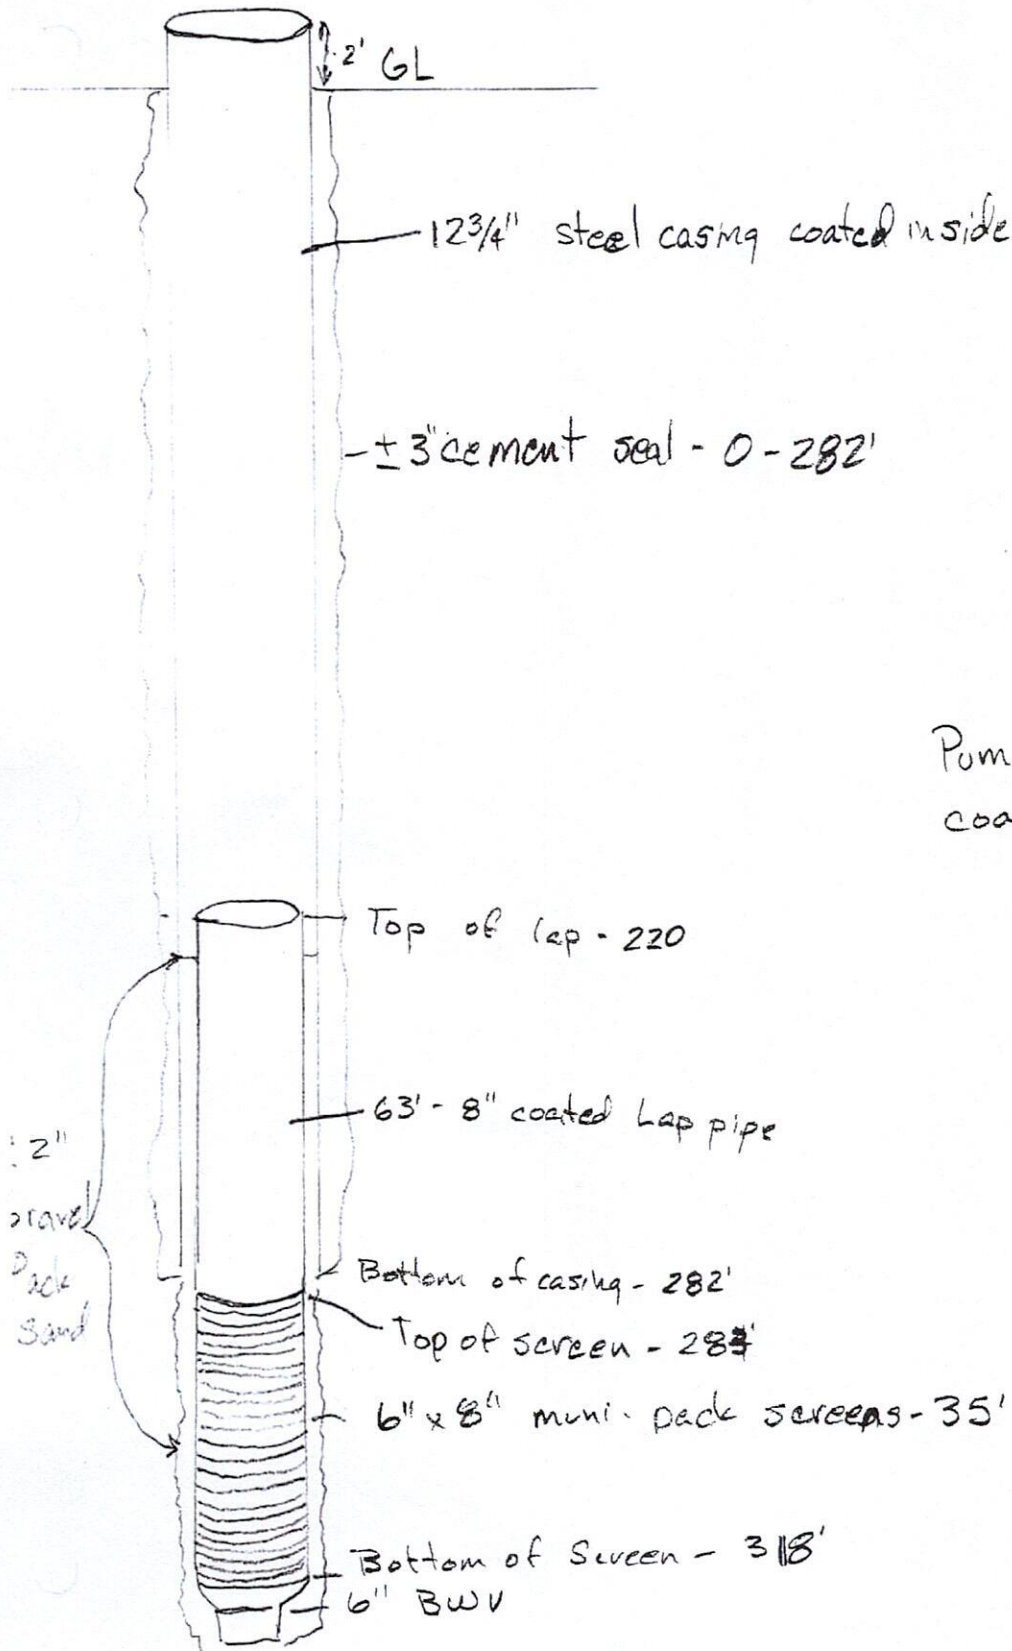 2' GL
12 3/4" steel casing coated inside
± 3" cement seal - 0 - 282'
Pum
coa
Top of lap - 220
63' - 8" coated Lap pipe
2"
ravel
Pack
Sand
Bottom of casing - 282'
Top of screen - 283'
6" x 8" muni-pack screens - 35'
Bottom of Screen - 318'
6" BWV